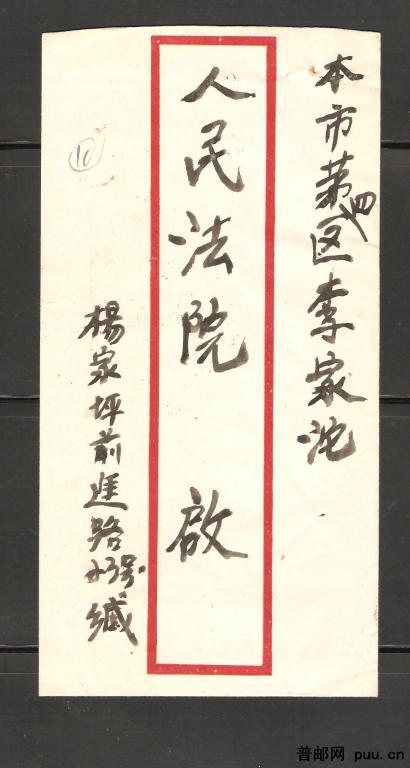 本市第四区李家沱
人民法院 啟
楊家坪前進路 号 緘
10
普邮网 puu.cn